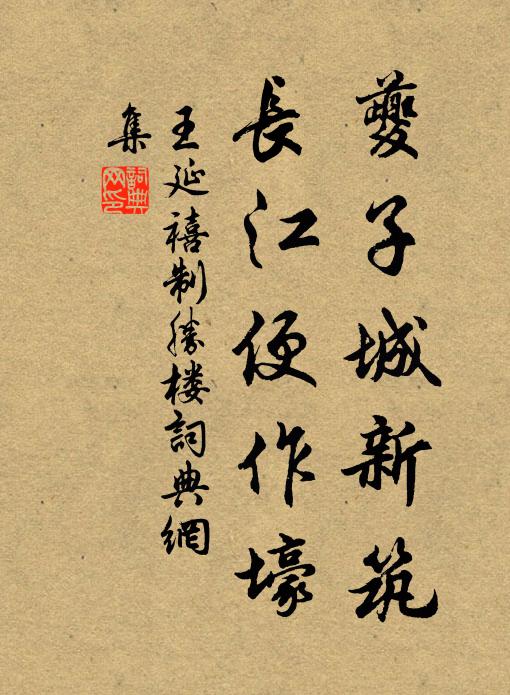 夔子城新筑
長江便作壕
王延禧制勝楼詞典網
集
詞典网印